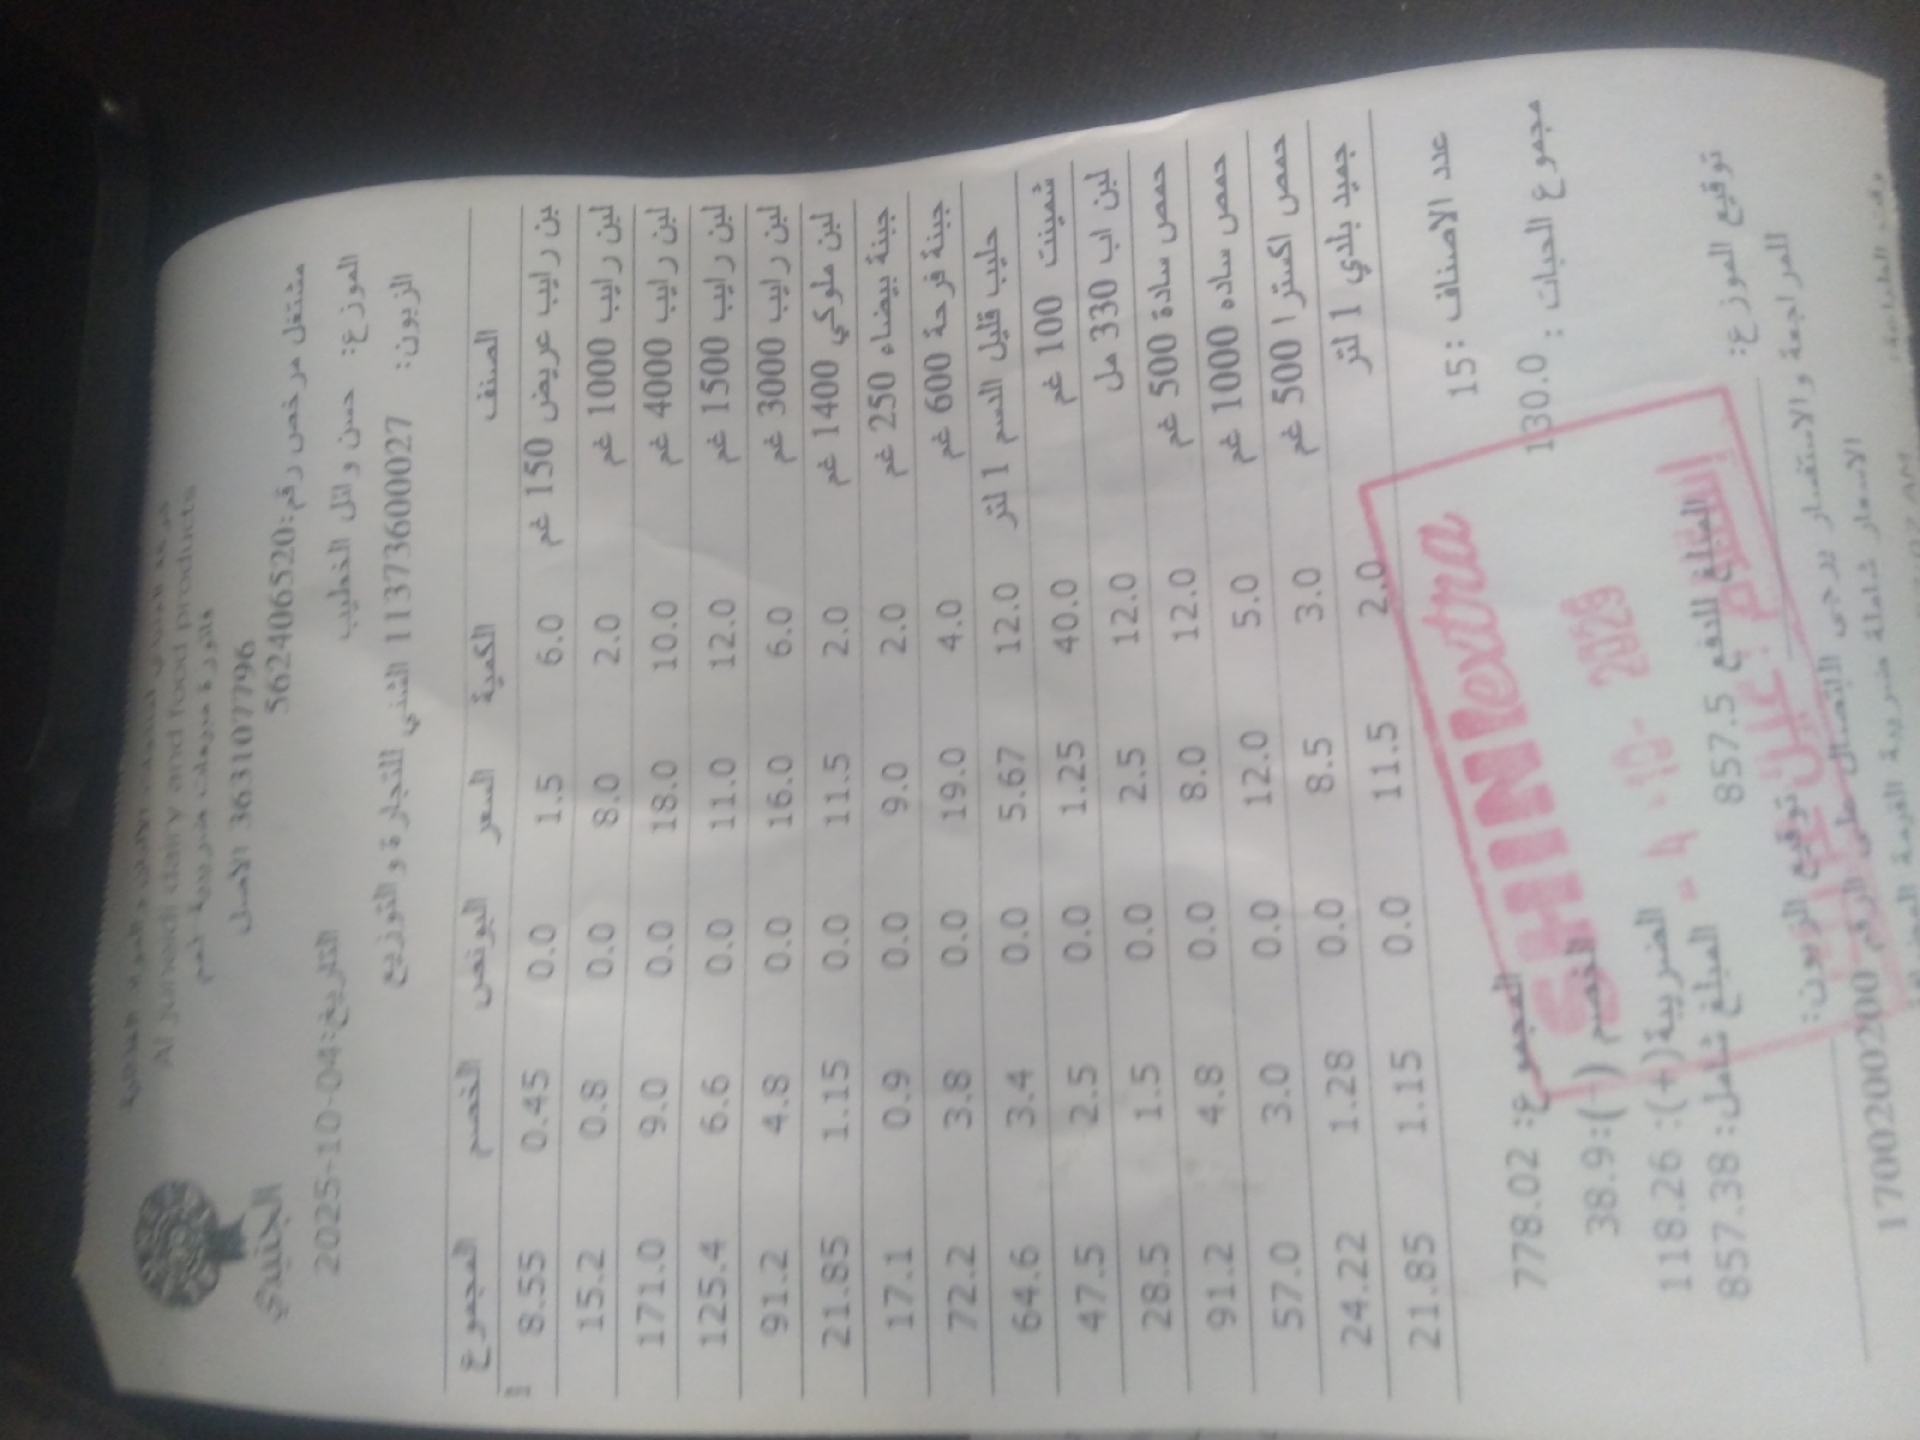 الجنيدي
Al Juneidi dairy and food products
فاتورة مبيعات ضريبية لعم
363107796 الاصل
مشتغل مرخص رقم:562406520
التاريخ:2025-10-04
الموزع: حسن وائل الخطيب
الزبون: 1137360002 7 الثني للتجارة و التوزيع
الصنف الكمية السعر البونص الخصم المجموع
بن رايب عريض 150 غم 6.0 1.5 0.0 0.45 8.55
لبن رايب 1000 غم 2.0 8.0 0.0 0.8 15.2
لبن رايب 4000 غم 10.0 18.0 0.0 9.0 171.0
لبن رايب 1500 غم 12.0 11.0 0.0 6.6 125.4
لبن رايب 3000 غم 6.0 16.0 0.0 4.8 91.2
لبن ملوكي 1400 غم 2.0 11.5 0.0 1.15 21.85
جبنة بيضاء 250 غم 2.0 9.0 0.0 0.9 17.1
جبنة فرحة 600 غم 4.0 19.0 0.0 3.8 72.2
حليب قليل الدسم 1 لتر 12.0 5.67 0.0 3.4 64.6
شمينت 100 غم 40.0 1.25 0.0 2.5 47.5
لبن اب 330 مل 12.0 2.5 0.0 1.5 28.5
حمص سادة 500 غم 12.0 8.0 0.0 4.8 91.2
حمص ساده 1000 غم 5.0 12.0 0.0 3.0 57.0
حمص اكسترا 500 غم 3.0 8.5 0.0 1.28 24.22
جميد بلدي 1 لتر 2.0 11.5 0.0 1.15 21.85
عدد الاصناف : 15
المجموع: 778.02
مجموع الحبات : 130.0
الخصم (-):38.9
الضريبة(+): 118.26
المبلغ شامل: 857.38
المبلغ للدفع 857.5
SHINI extra
4 -10- 2025
إستلام
توقيع الموزع:
توقيع الزبون:
للمراجعة والاستفسار يرجى الاتصال على الرقم 1700200200
الاسعار شاملة ضريبة القيمة المضافة